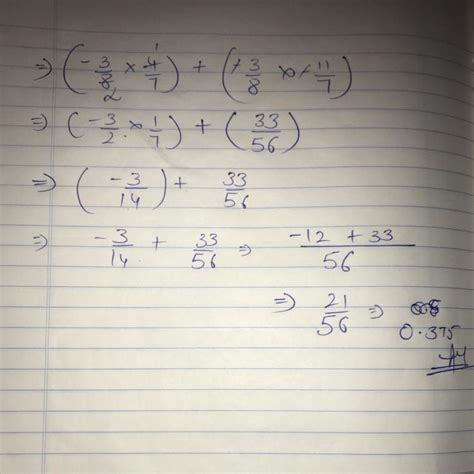 ⇒ (-3/8 2 × 4 1/7) + (-3/8 × -11/7)
⇒ (-3/2 × 1/7) + (33/56)
⇒ (-3/14) + 33/56
⇒ -3/14 + 33/56 ⇒ -12 + 33/56
⇒ 21/56 ⇒
0.375